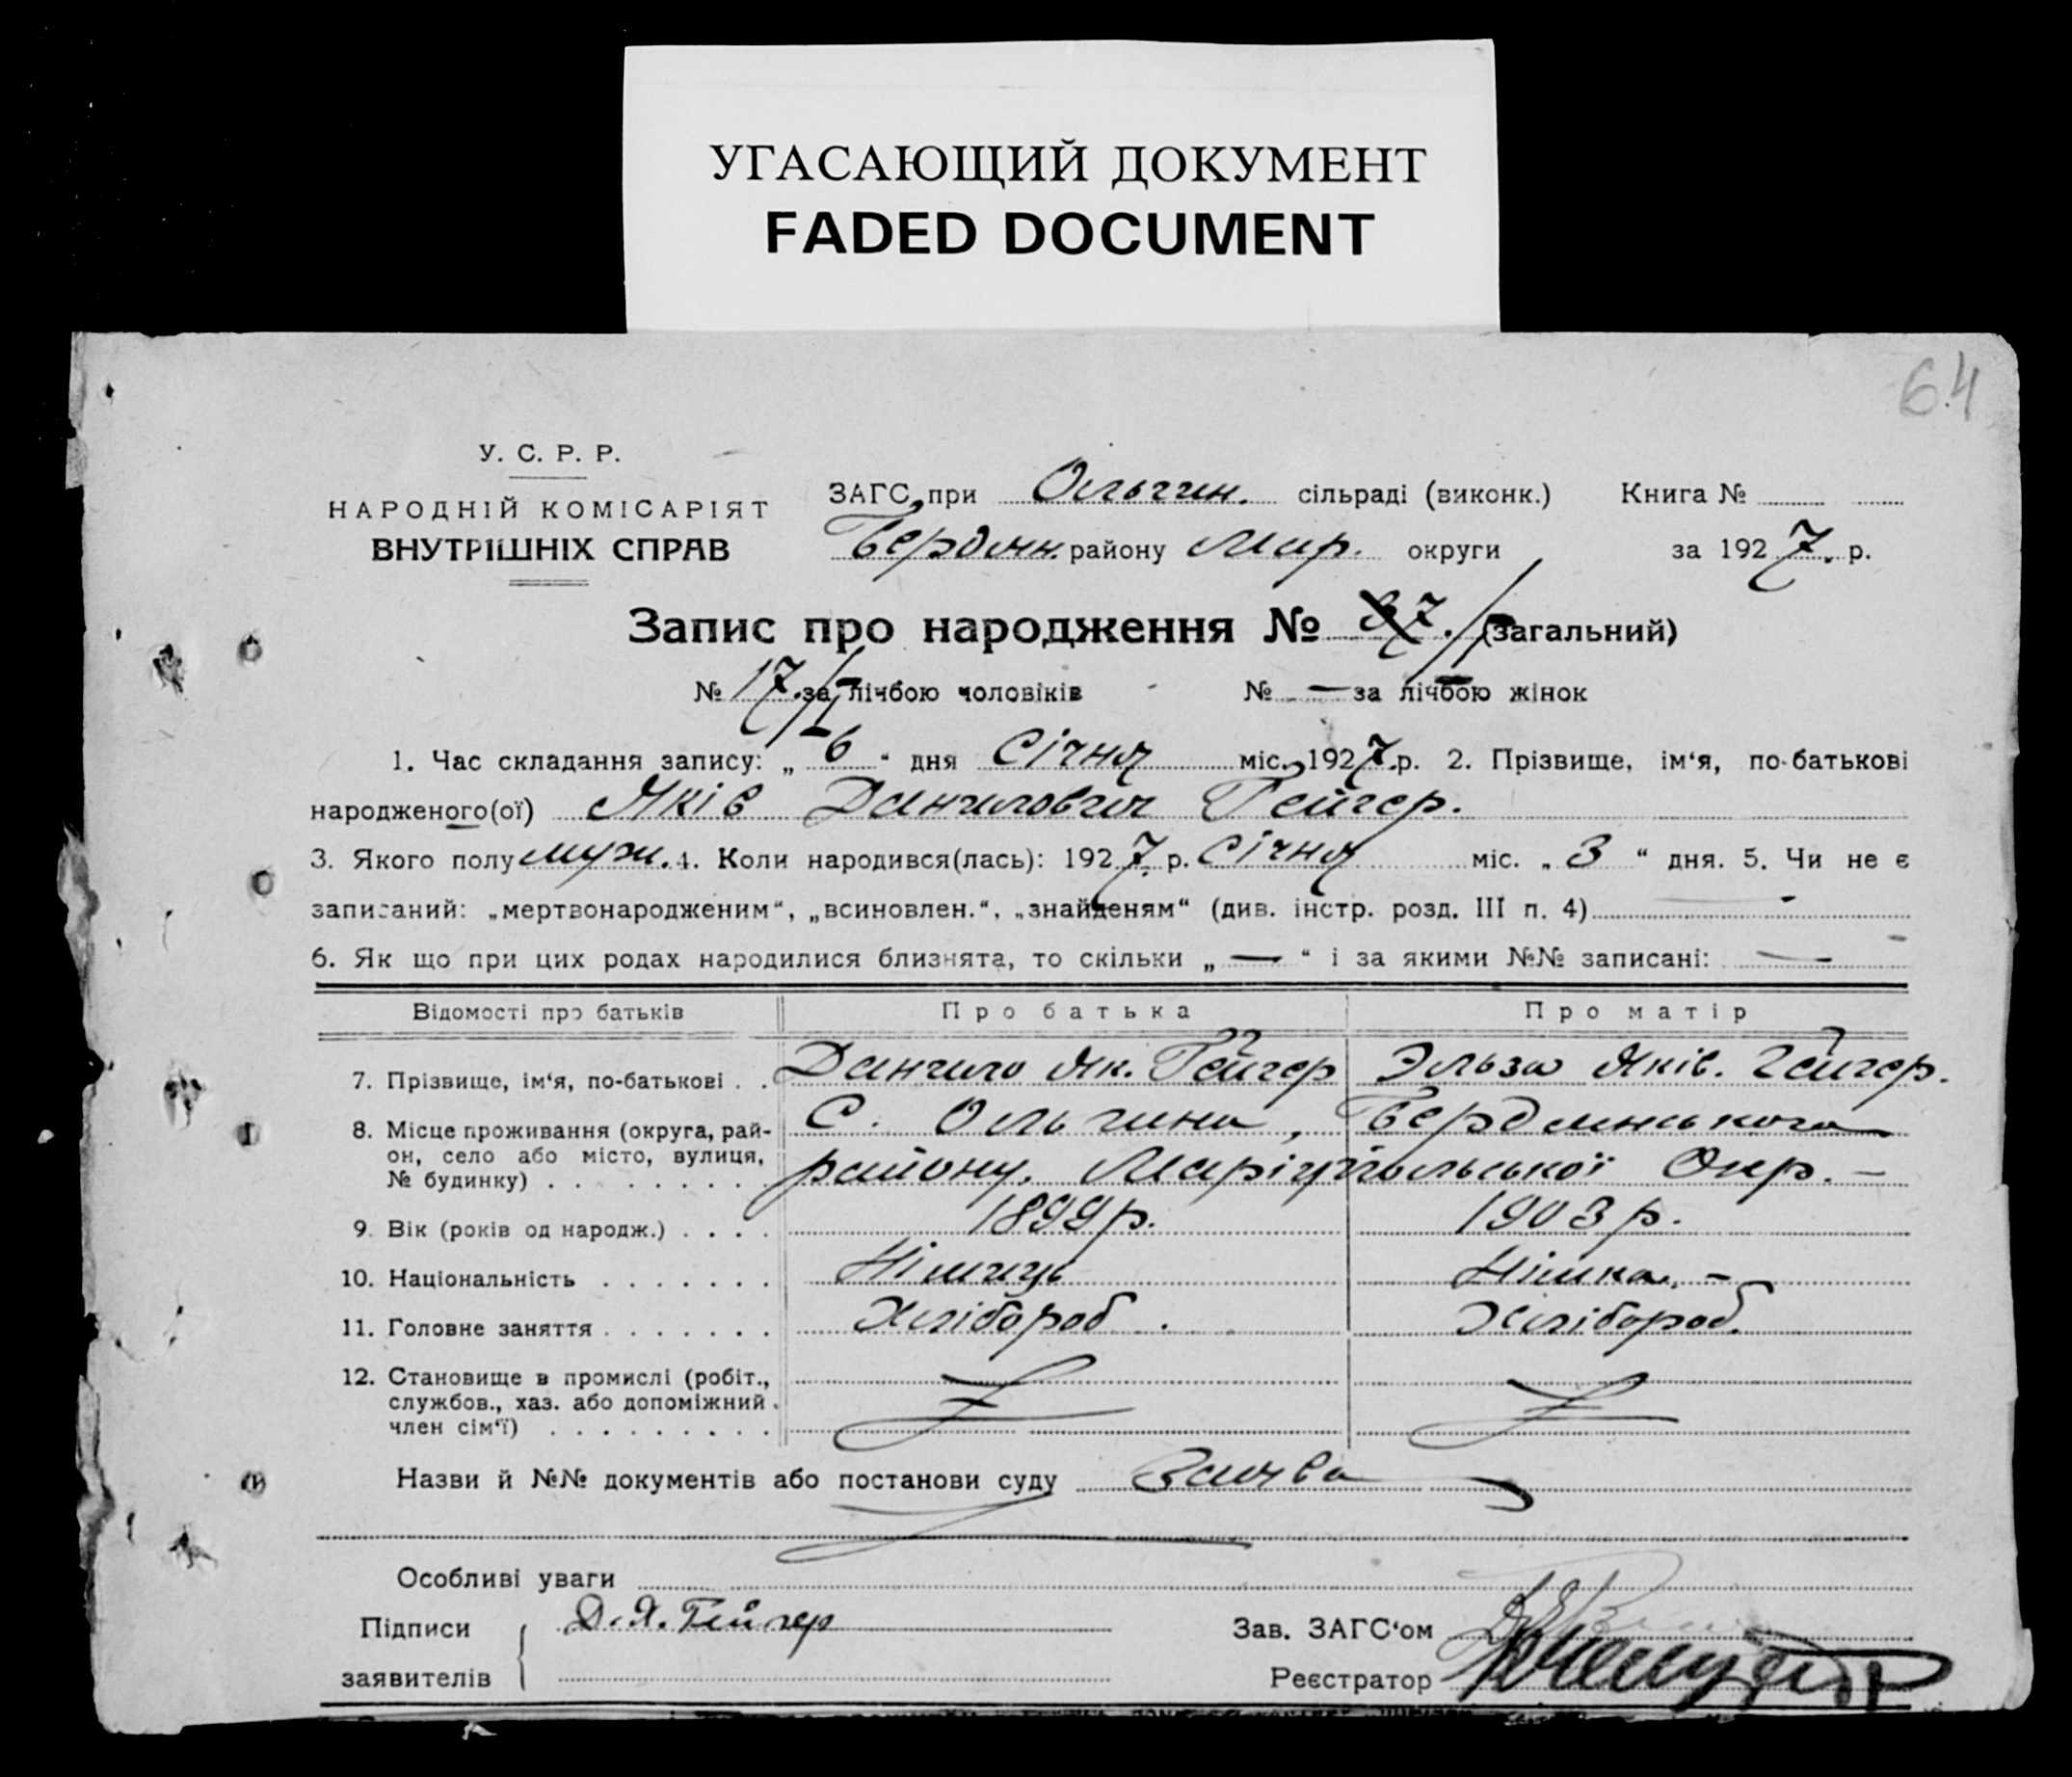 УГАСАЮЩИЙ ДОКУМЕНТ
FADED DOCUMENT
64
У. С. Р. Р.
НАРОДНІЙ КОМІСАРІЯТ
ВНУТРІШНІХ СПРАВ
ЗАГС при Ольгин. сільраді (виконк.) Книга №
Бердян. району Мар. округи за 1927 р.
Запис про народження № (загальний)
№ 17 за лічбою чоловіків № — за лічбою жінок
1. Час складання запису: „ 6 “ дня Січня міс. 1927 р. 2. Прізвище, ім‘я, по-батькові
народженого(ої) Яків Данилович Гейгер.
3. Якого полу муж. 4. Коли народився(лась): 1927 р. Січня міс. „ 3 “ дня. 5. Чи не є
записаний: „мертвонародженим“, „всиновлен.“, „знайденям“ (див. інстр. розд. III п. 4)
6. Як що при цих родах народилися близнята, то скільки „ — “ і за якими №№ записані: —
Відомості про батьків Про батька Про матір
7. Прізвище, ім‘я, по-батькові . . Данило Як. Гейгер Эльза Яків. Гейгер.
8. Місце проживання (округа, рай- С. Ольгино, Бердянського
он, село або місто, вулиця, району, Маріупольської Окр. —
№ будинку) . . . . . . . . .
9. Вік (років од народж.) . . . . 1899 р. 1903 р.
10. Національність . . . . . . . Німець Німка. —
11. Головне заняття . . . . . . . Хлібороб . Хлібороб.
12. Становище в промислі (робіт.,
службов., хаз. або допоміжний
член сім‘ї) . . . . . . . . .
Назви й №№ документів або постанови суду Заява
Особливі уваги
Підписи Д. Я. Гейгер Зав. ЗАГС‘ом
заявителів Реєстратор